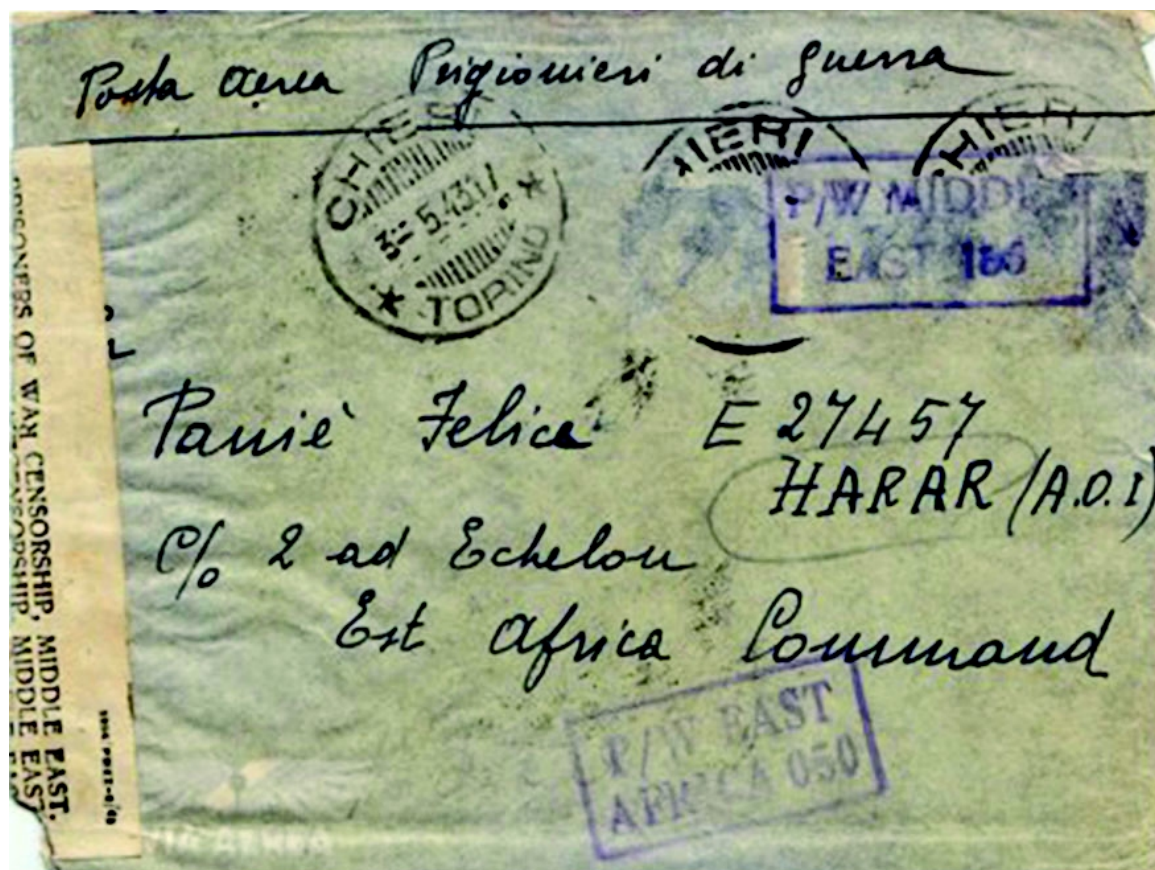 Posta aerea Prigionieri di guerra
CHIERI
3 - 5.43
TORINO
HIERI
HIERI
P/W MIDDLE
EAST 156
Panié Felice E 27457
HARAR (A.O.I)
C/o 2 ad Echelon
Est Africa Command
P/W EAST
AFRICA 050
PRISONERS OF WAR CENSORSHIP, MIDDLE EAST.
CENSORSHIP, MIDDLE EAST.
VIA AEREA